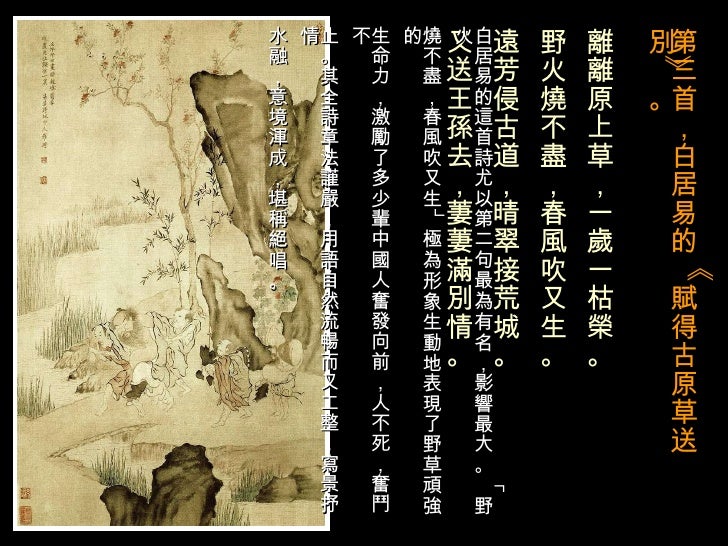 第三首，白居易的《賦得古原草送
別》。
離離原上草，一歲一枯榮。
野火燒不盡，春風吹又生。
遠芳侵古道，晴翠接荒城。
又送王孫去，萋萋滿別情。
白居易的這首詩尤以第二句最為有名，影響最大。「野
火
燒不盡，春風吹又生」極為形象生動地表現了野草頑強
的
生命力，激勵了多少輩中國人奮發向前，人不死，奮鬥
不
止。其全詩章法謹嚴 用語自然流暢而又工整 寫景抒
情
水融，意境渾成，堪稱絕唱。